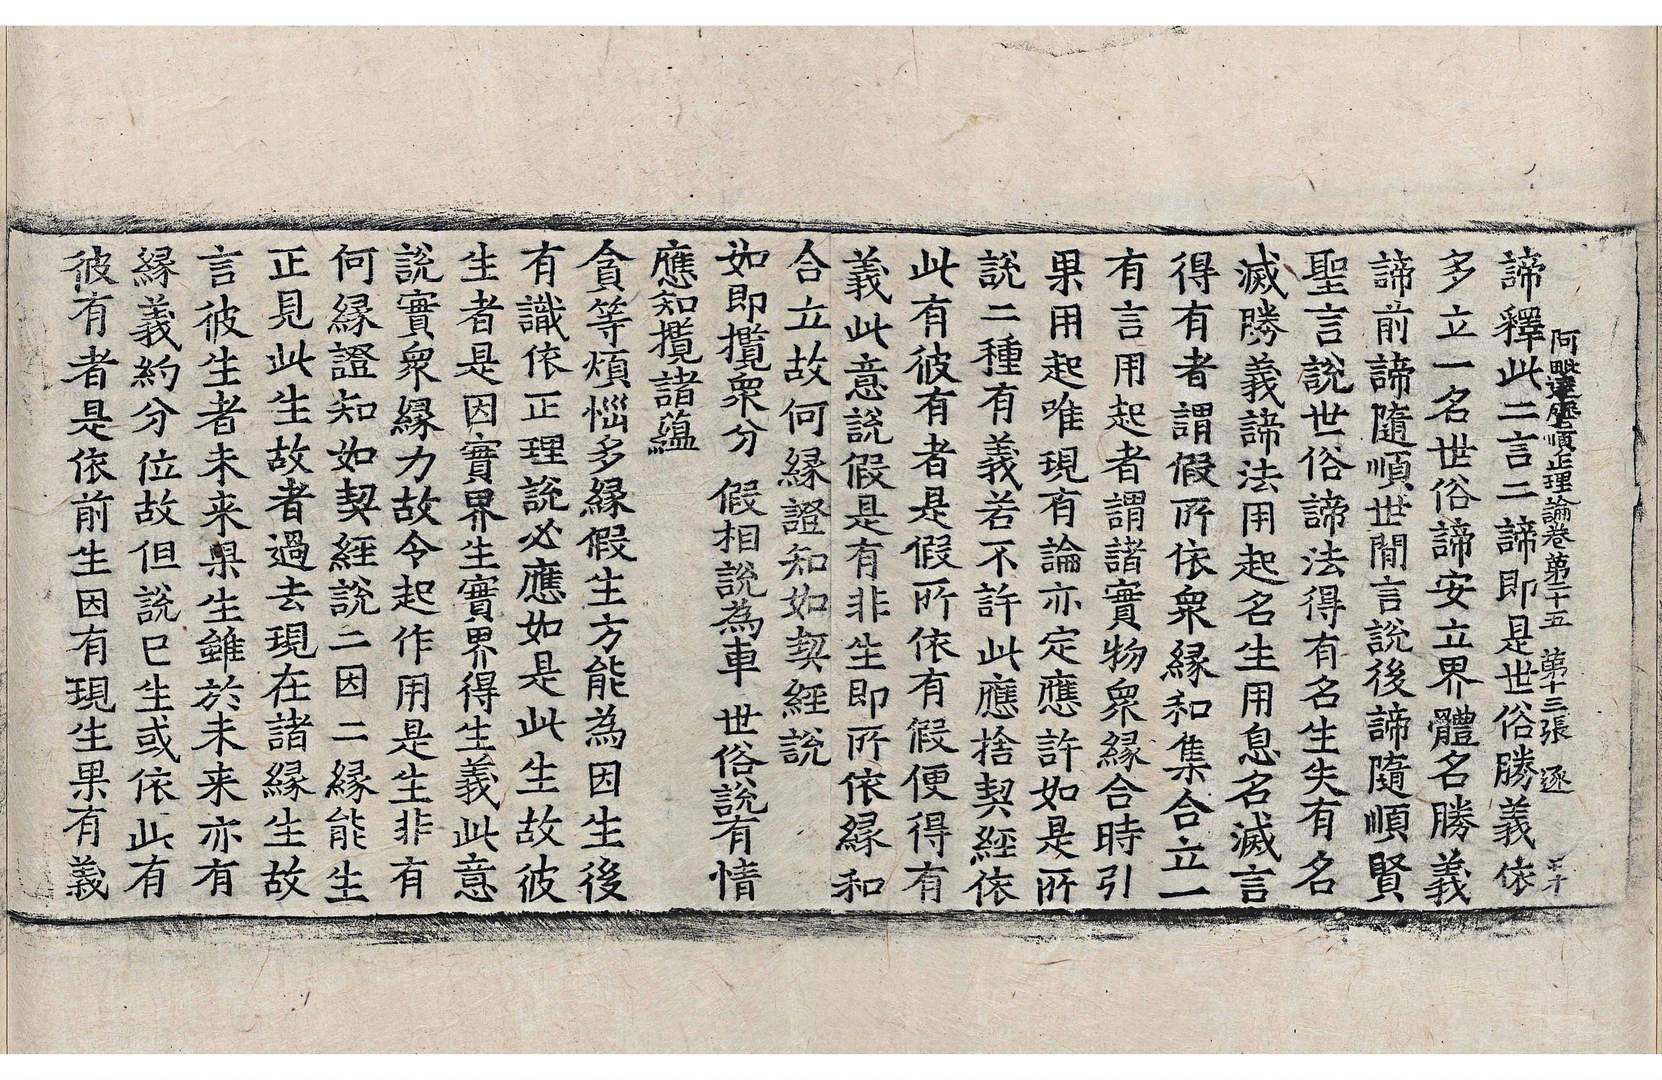 阿毗達磨順正理論卷第二十五 第十三張 逐
諦釋此二言二諦即是世俗勝義依
多立一名世俗諦安立界體名勝義
諦前諦隨順世間言說後諦隨順賢
聖言說世俗諦法得有名生失有名
滅勝義諦法用起名生用息名滅言
得有者謂假所依衆緣和集合立一
有言用起者謂諸實物衆緣合時引
果用起唯現有論亦定應許如是所
說二種有義若不許此應捨契經依
此有彼有者是假所依有假便得有
義此意說假是有非生即所依緣和
合立故何緣證知如契經說
如即攬衆分 假相說為車 世俗說有情
應知攬諸蘊
貪等煩惱多緣假生方能為因生後
有識依正理說必應如是此生故彼
生者是因實界生實界得生義此意
說實衆緣力故令起作用是生非有
何緣證知如契經說二因二緣能生
正見此生故者過去現在諸緣生故
言彼生者未来果生雖於未来亦有
緣義約分位故但說已生或依此有
彼有者是依前生因有現生果有義